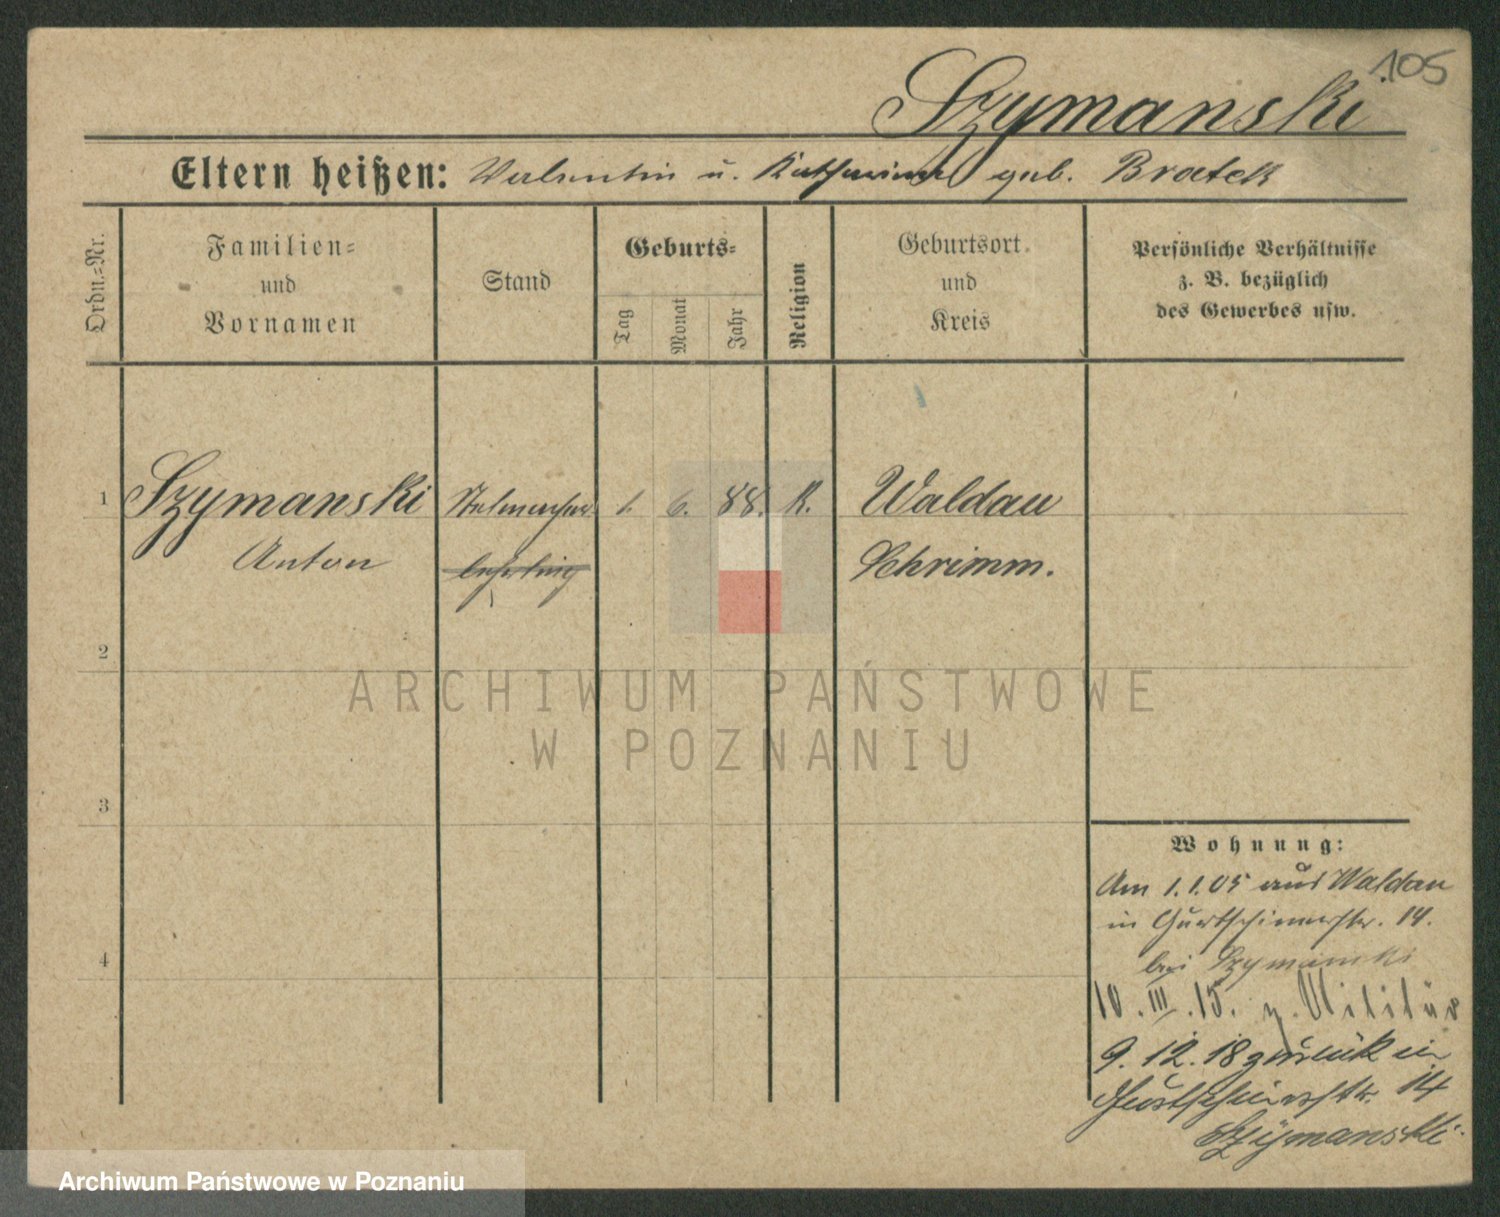 105
Szymanski
Eltern heißen: Valentin u. Katharina geb. Bratek
Ordn.=Nr.
Familien=
und
Vornamen
Stand
Geburts=
Tag
Monat
Jahr
Religion
Geburtsort
und
Kreis
Persönliche Verhältnisse
z. B. bezüglich
des Gewerbes usw.
1 Szymanski Stelmacher 1. 6. 88. K. Waldau
Anton lehrling Schrimm.
2
3
4
ARCHIWUM PAŃSTWOWE
W POZNANIU
Wohnung:
Am 1.1.05 aus Waldau
in Gurtschinerstr. 14.
bei Szymanski
10.III.15. z. Militär
9.12.18 zurück in
Gurtschinerstr. 14
Szymanski
Archiwum Państwowe w Poznaniu